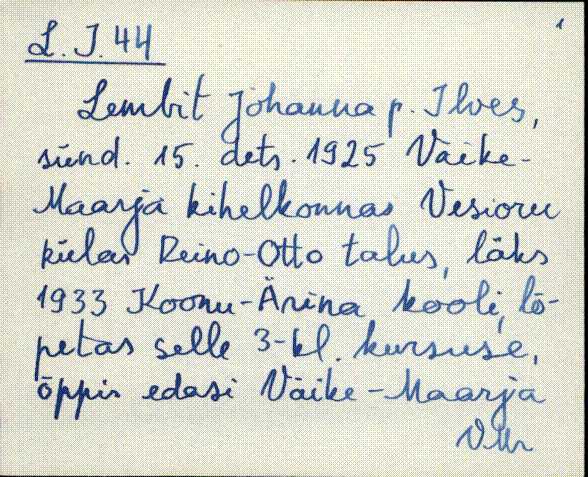 1
L. I. 44
Lembit Johanna p. Ilves,
sünd. 15. dets. 1925 Väike-
Maarja kihelkonnas Vesioru
külas Reino-Otto talus, läks
1933 Koonu-Ärina kooli, lõ-
petas selle 3-kl. kursuse,
õppis edasi Väike-Maarja